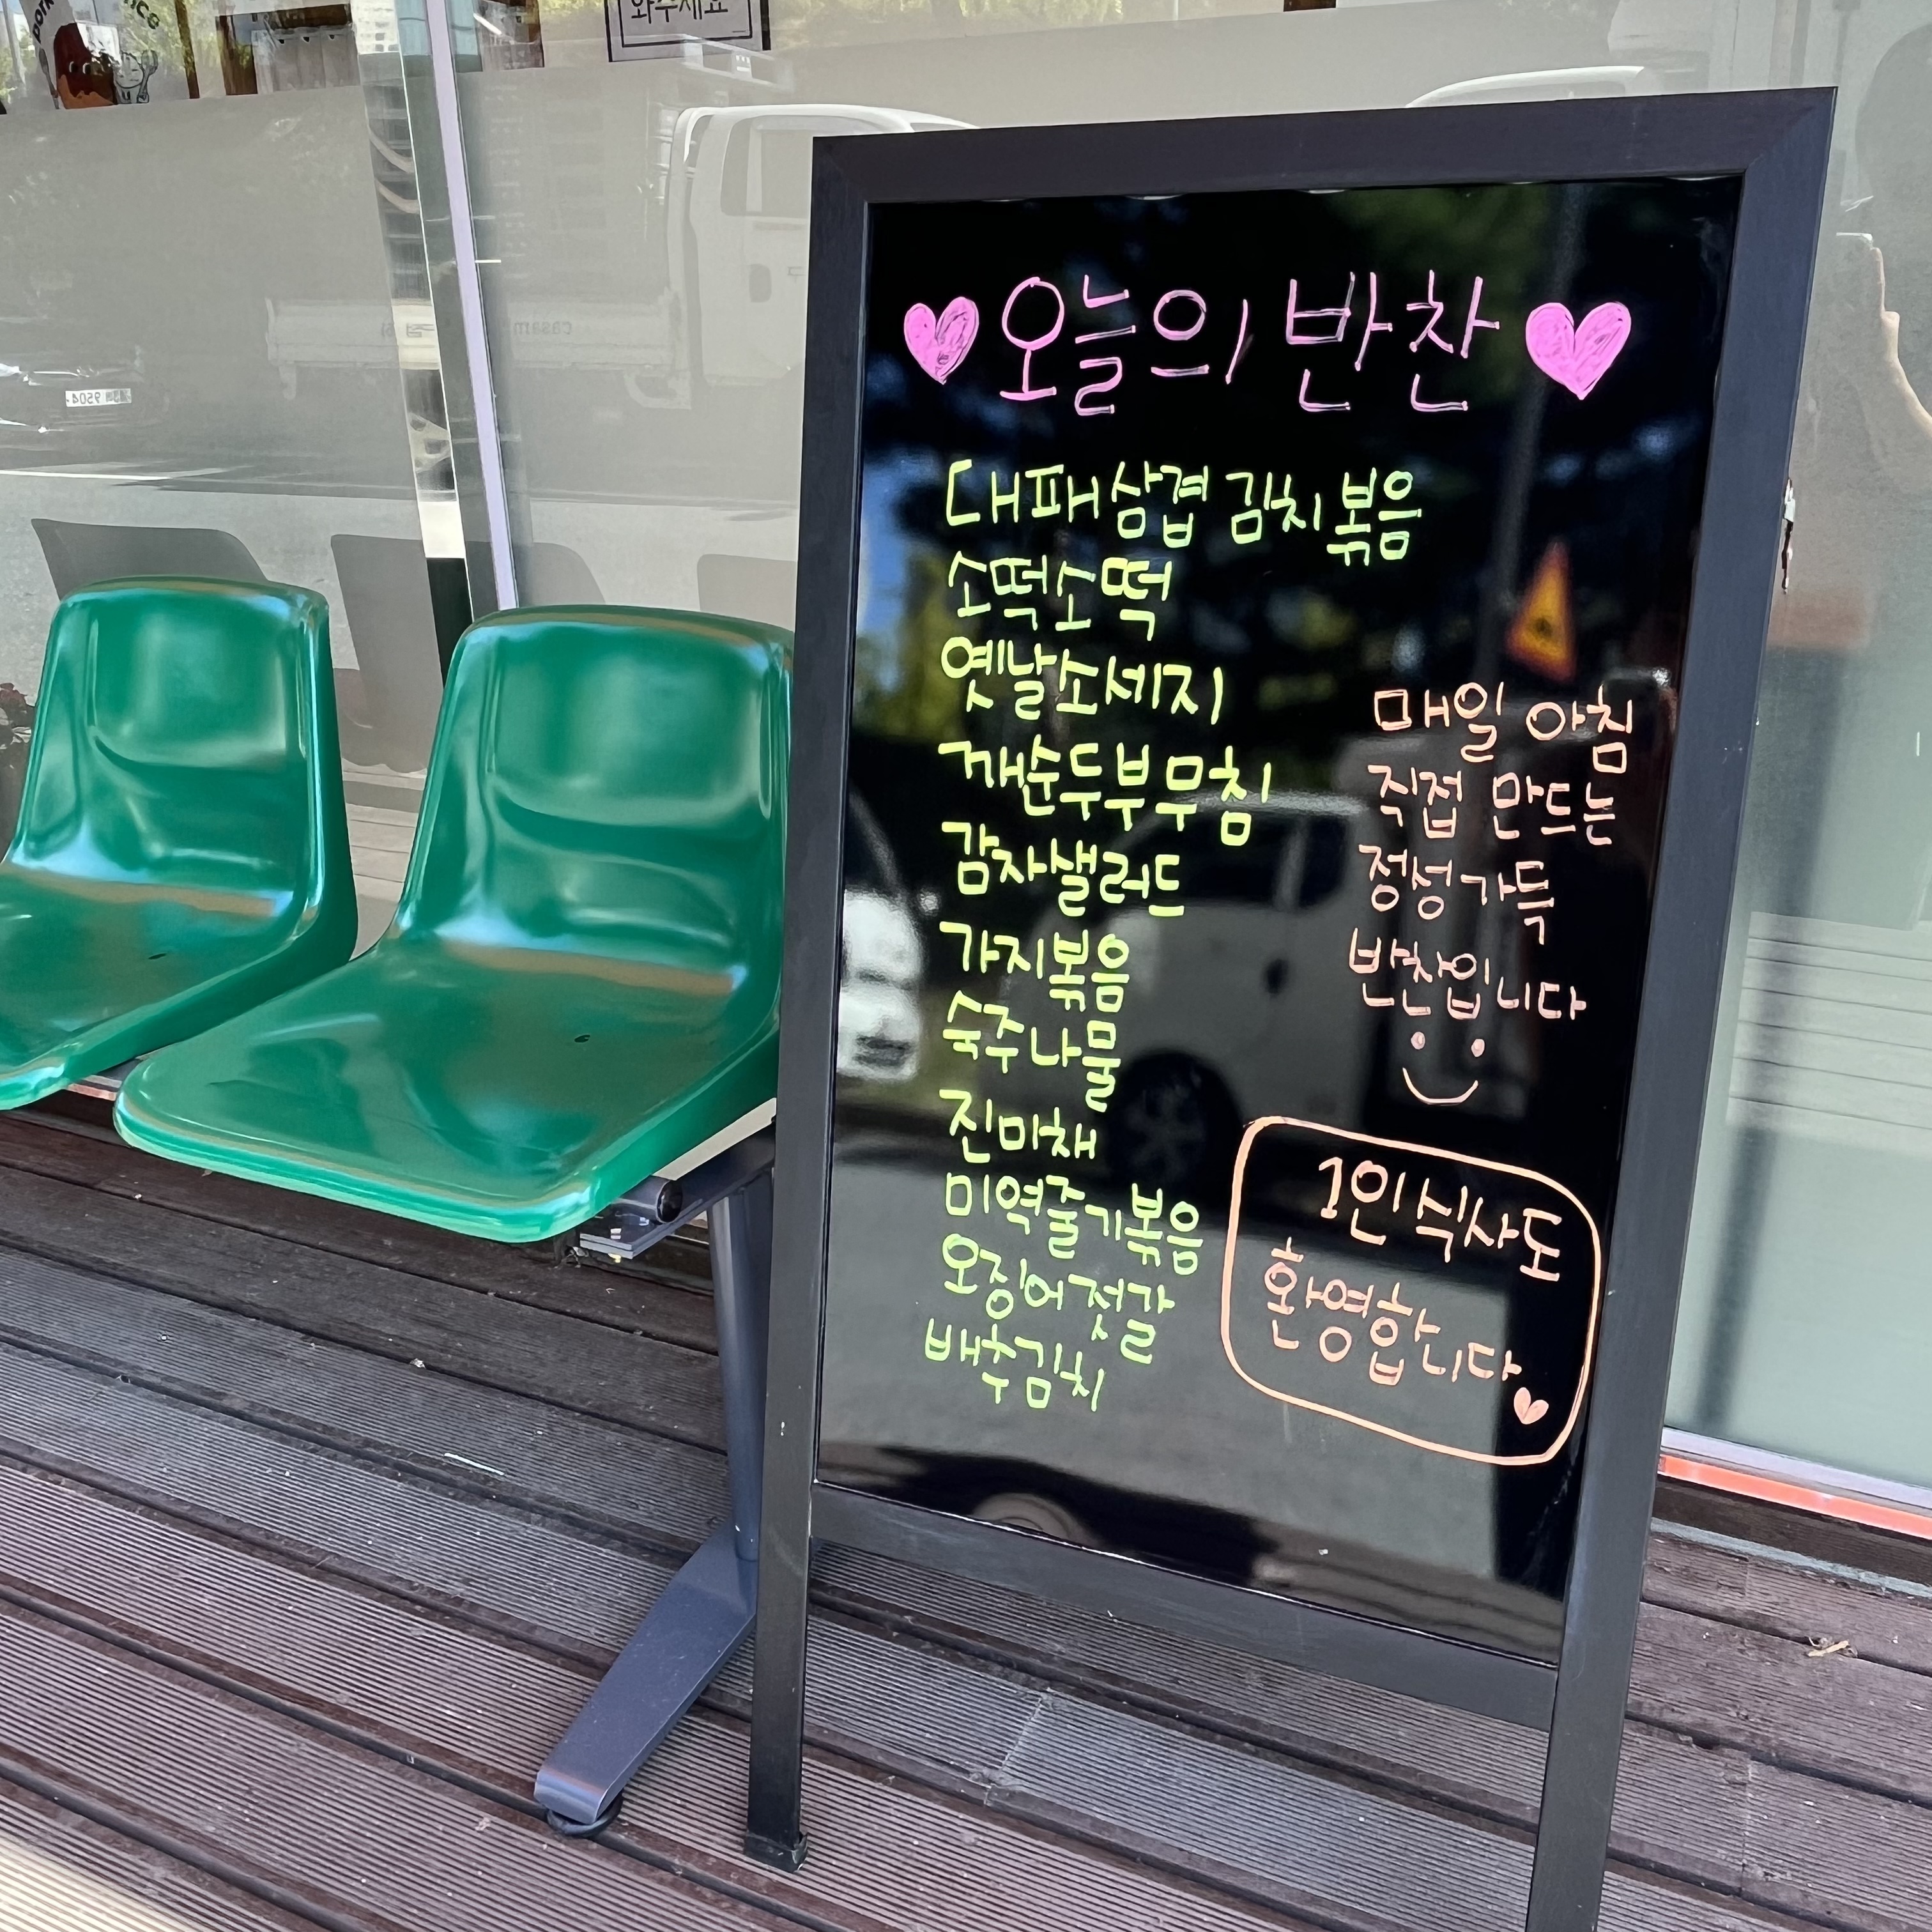 와주세요
오늘의 반찬
대패삼겹 김치볶음
소떡소떡
옛날소세지
깨순두부무침
감자샐러드
가지볶음
숙주나물
진미채
미역줄기볶음
오징어젓갈
배추김치
매일 아침
직접 만드는
정성가득
반찬입니다
1인식사도
환영합니다